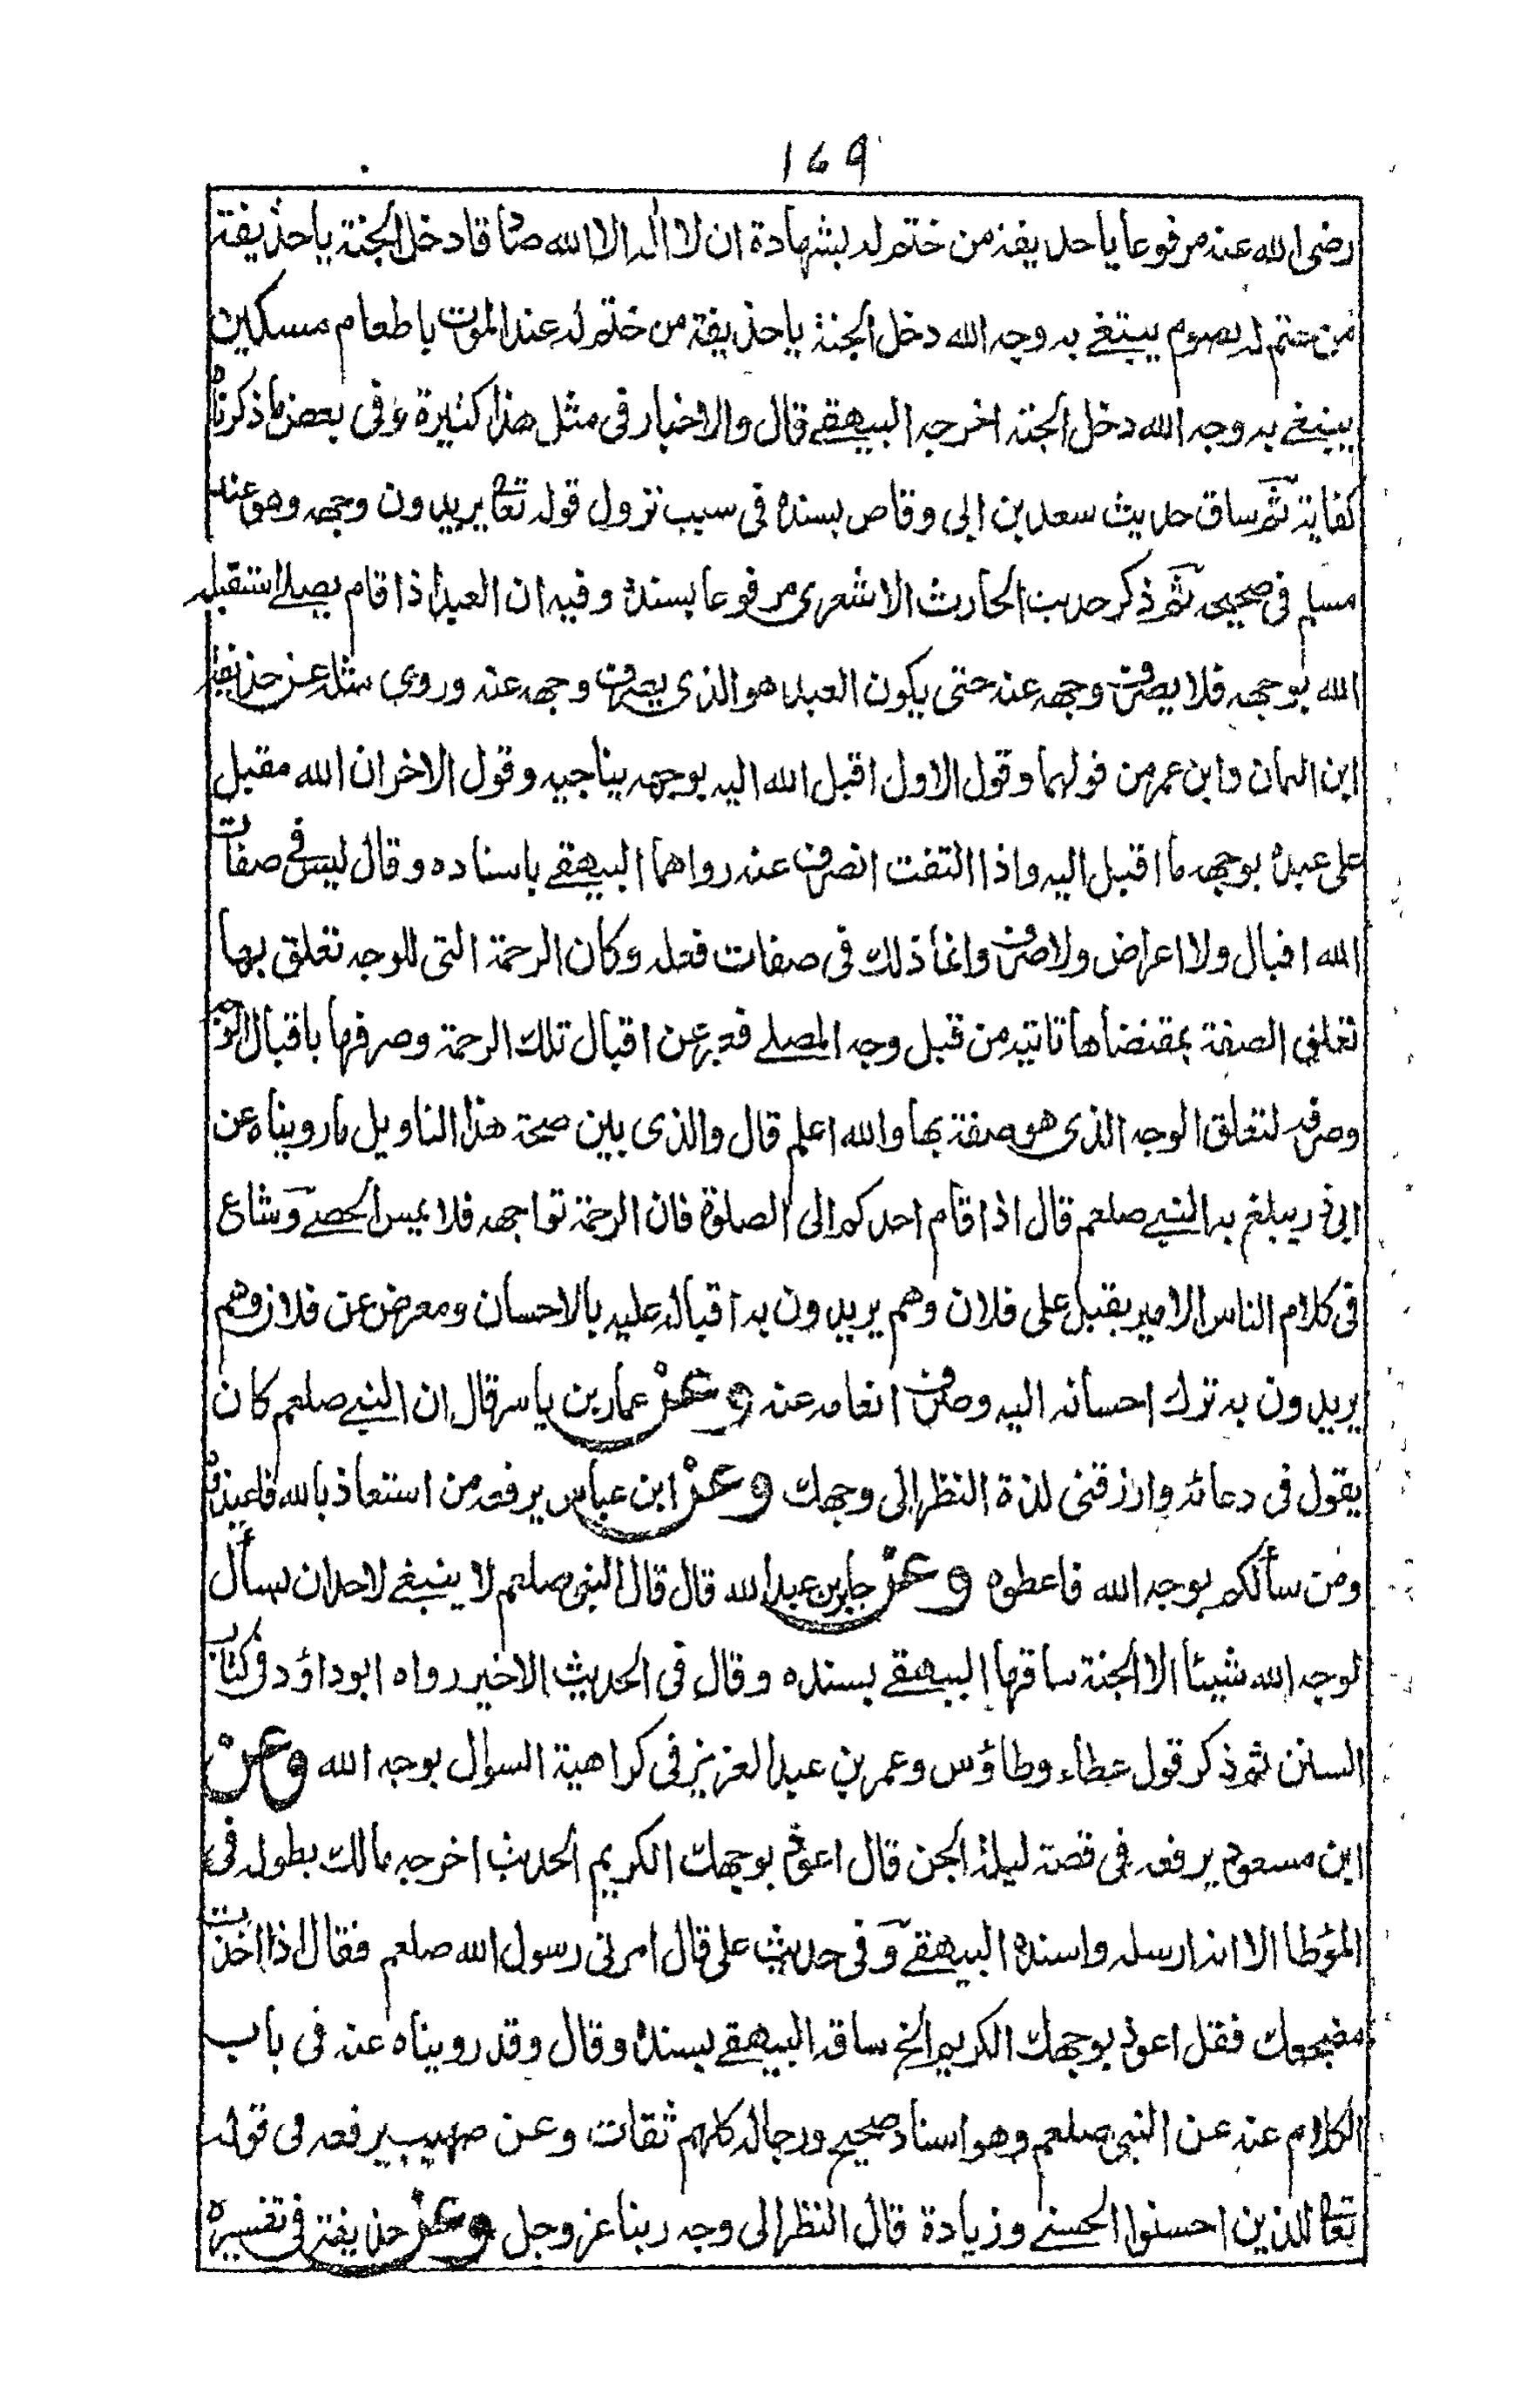 ١٦٩
رضى الله عنه مرفوعا يا حذيفة من ختم له بشهادة ان لا اله الا الله صادقا دخل الجنة يا حذيفة
من ختم له بصوم يبتغى به وجه الله دخل الجنة يا حذيفة من ختم له عند الموت باطعام مسكين
يبتغى به وجه الله دخل الجنة اخرجه البيهقى قال والاخبار فى مثل هذا كثيرة وفى بعض ما ذكرناه
كفاية ثم ساق حديث سعد بن ابى وقاص بسنده فى سبب نزول قوله تعا يريدون وجهه وهو عند
مسلم فى صحيحه ثم ذكر حديث الحارث الاشعرى مرفوعا بسنده وفيه ان العبد اذا قام يصلى استقبله
الله بوجهه فلا يصرف وجهه عنه حتى يكون العبد هو الذى يصرف وجهه عنه وروى مثله عن حذيفة
ابن اليمان وابن عمر من قولهما وقول الاول اقبل الله اليه بوجهه يناجيه وقول الاخر ان الله مقبل
على عبده بوجهه ما اقبل اليه واذا التفت انصرف عنه رواهما البيهقى باسناده وقال ليس فى صفات
الله اقبال ولا اعراض ولا صرف وانما ذلك فى صفات فعله وكان الرحمة التى للوجه تعلق بها
تعلق الصفة بمقتضاها تاتيه من قبل وجه المصلى فعبر عن اقبال تلك الرحمة وصرفها باقبال الوجه
وصرفه لتعلق الوجه الذى هو صفة بها والله اعلم قال والذى يبين صحة هذا التاويل ما رويناه عن
ابى ذر يبلغ به النبى صلعم قال اذا قام احدكم الى الصلوة فان الرحمة تواجهه فلا يمس الحصى وشاع
فى كلام الناس الامير يقبل على فلان وهم يريدون به اقباله عليه بالاحسان ومعرض عن فلان وهم
يريدون به ترك احسانه اليه وصرف انعامه عنه وعن عمار بن ياسر قال ان النبى صلعم كان
يقول فى دعائه وارزقنى لذة النظر الى وجهك وعن ابن عباس يرفعه من استعاذ بالله فاعيذوه
ومن سألكم بوجه الله فاعطوه وعن جابر بن عبد الله قال قال النبى صلعم لا ينبغى لاحد ان يسأل
لوجه الله شيئا الا الجنة ساقها البيهقى بسنده وقال فى الحديث الاخير رواه ابو داؤد فى كتاب
السنن ثم ذكر قول عطاء وطاؤس وعمر بن عبد العزيز فى كراهية السوال بوجه الله وعن
ابن مسعود يرفعه فى قصة ليلة الجن قال اعوذ بوجهك الكريم الحديث اخرجه مالك بطوله فى
المؤطا الا انه ارسله واسنده البيهقى وفى حديث على قال امرنى رسول الله صلعم فقال اذا اخذت
مضجعك فقل اعوذ بوجهك الكريم الخ ساقه البيهقى بسنده وقال وقد رويناه عنه فى باب
الكلام عنه عن النبى صلعم وهو اسناد صحيح ورجاله كلهم ثقات وعن صهيب يرفعه فى قوله
تعا للذين احسنوا الحسنى وزيادة قال النظر الى وجه ربنا عز وجل وعن حذيفة فى تفسيره